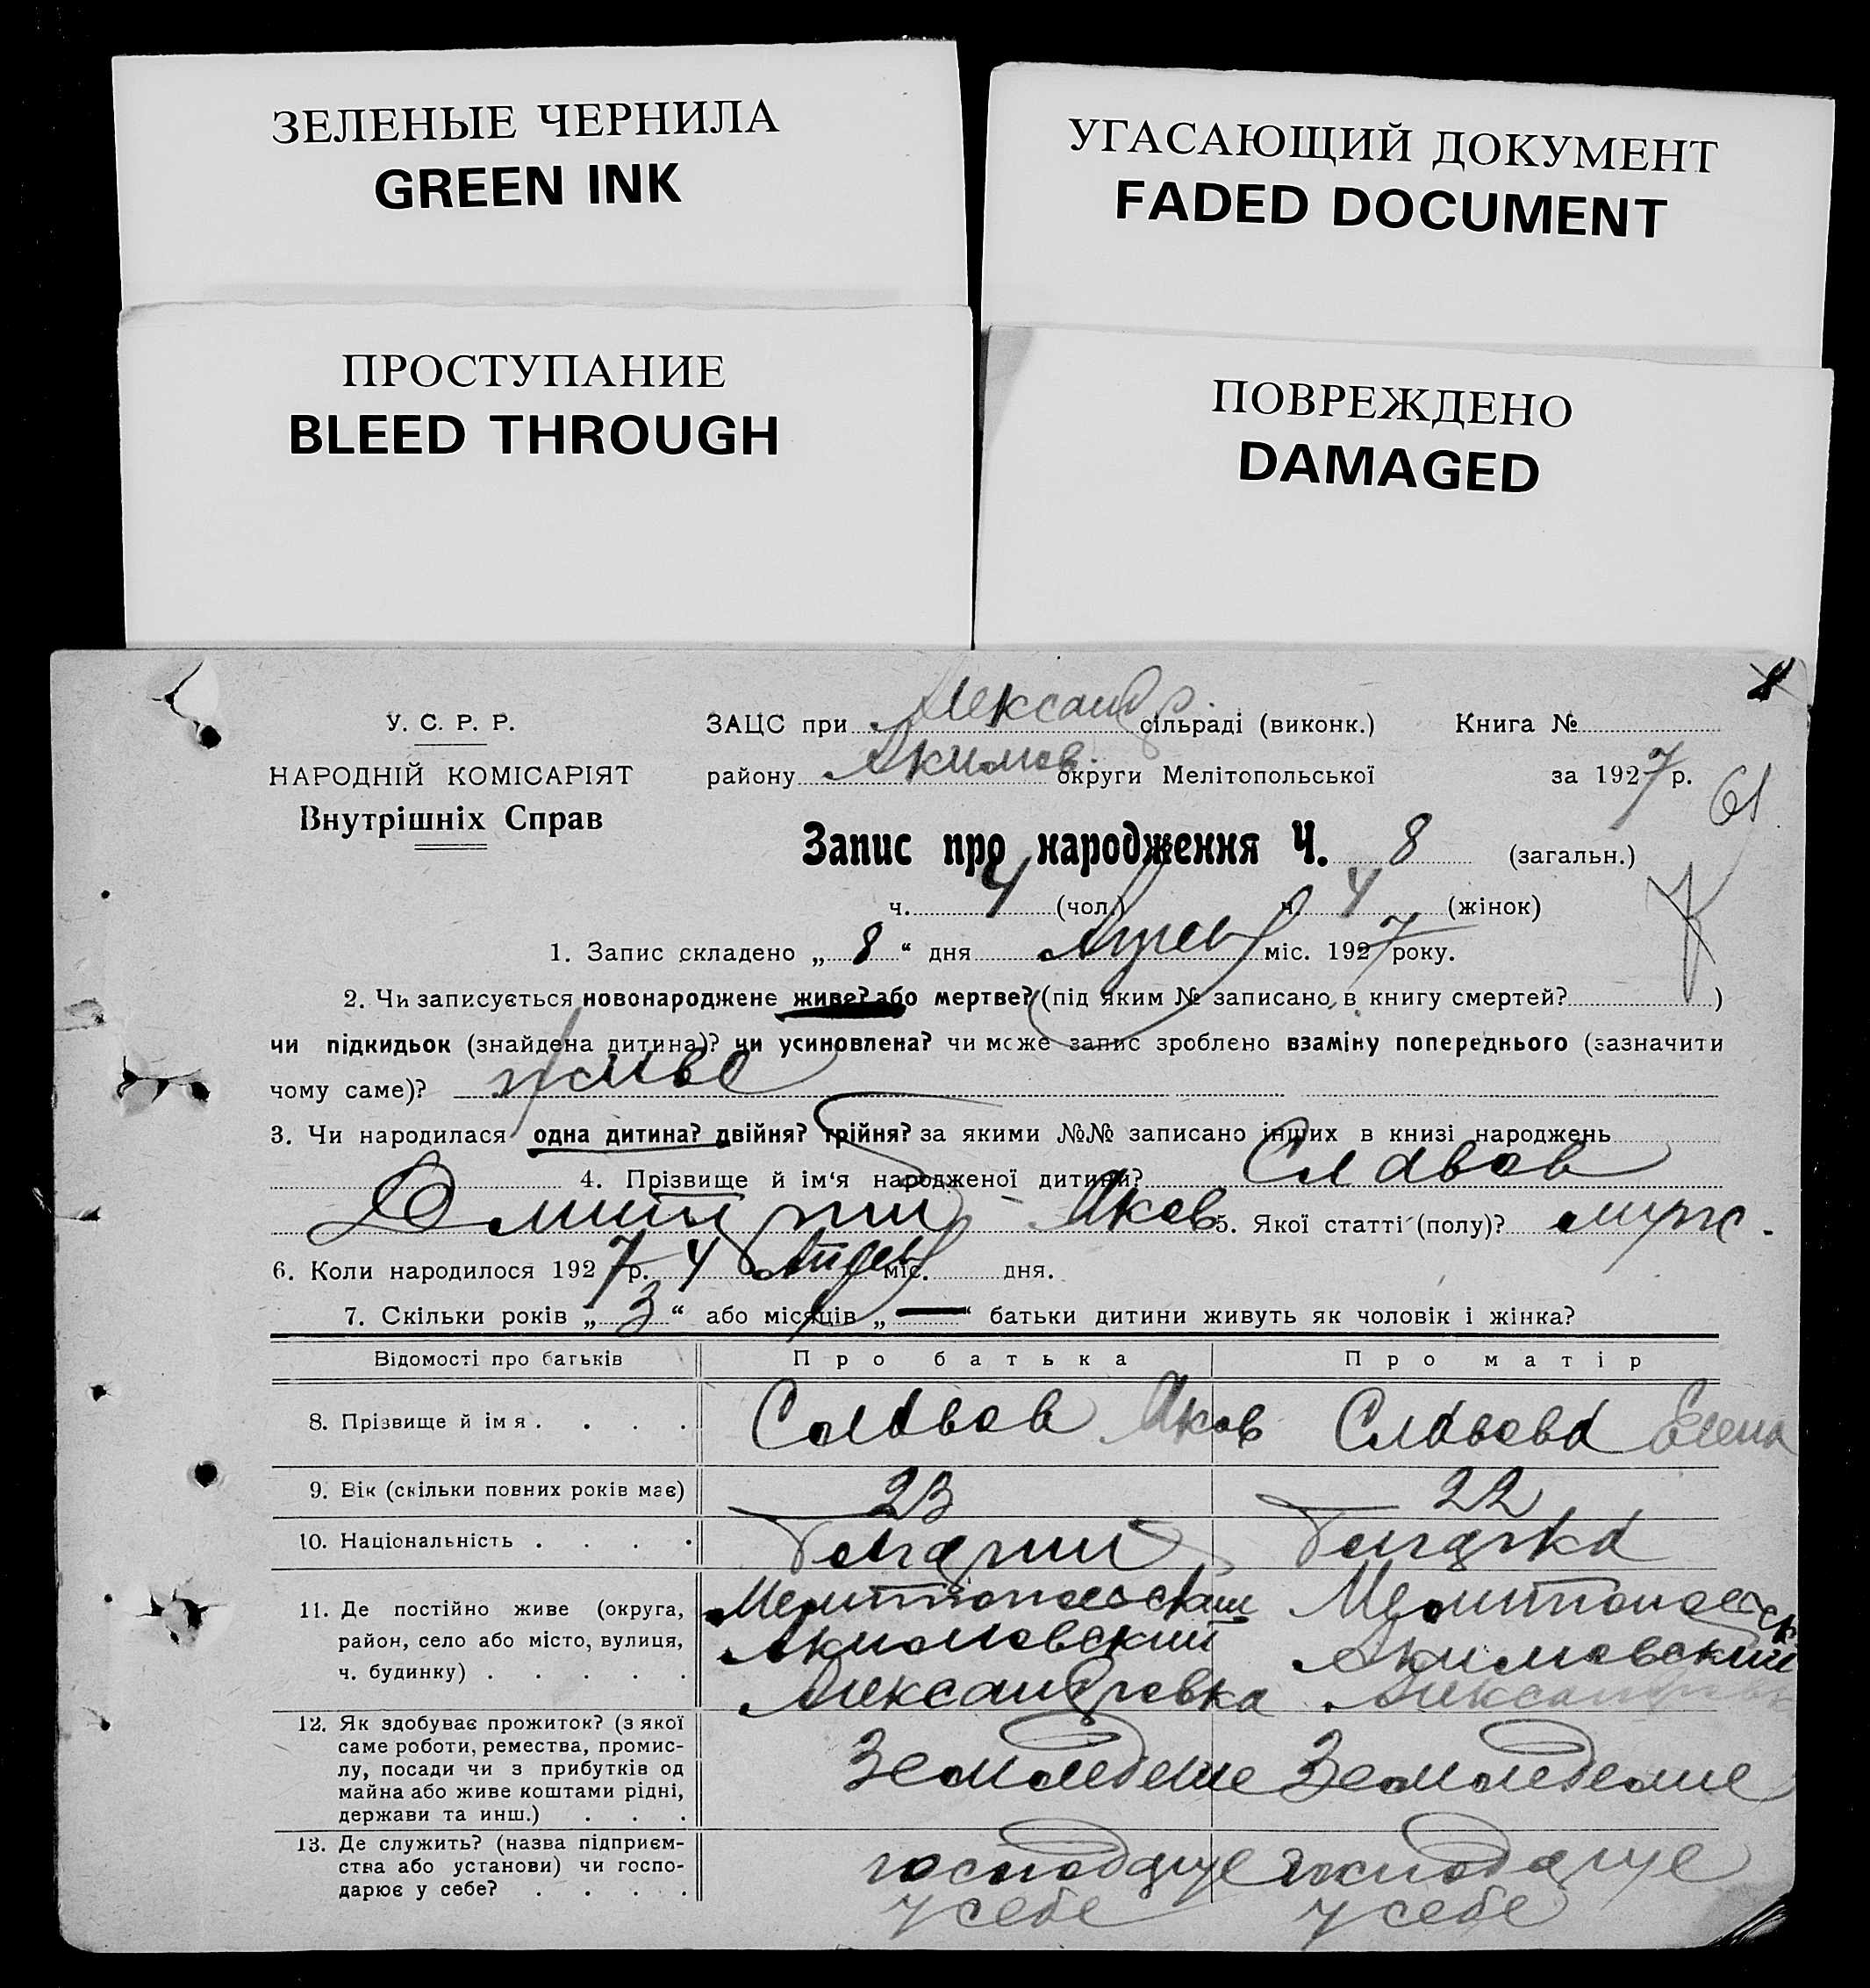 ЗЕЛЕНЫЕ ЧЕРНИЛА
GREEN INK
УГАСАЮЩИЙ ДОКУМЕНТ
FADED DOCUMENT
ПРОСТУПАНИЕ
BLEED THROUGH
ПОВРЕЖДЕНО
DAMAGED
У. С. Р. Р.
НАРОДНІЙ КОМІСАРІЯТ
Внутрішніх Справ
ЗАЦС при Александр. сільраді (виконк.) Книга №
району Акимов. округи Мелітопольської за 1927 р.
61
Запис про народження Ч. 8 (загальн.)
ч. 4 (чол.) ч. 4 (жінок)
1. Запис складено „ 8 “ дня міс. 1927 року.
2. Чи записується новонароджене живе? або мертве? (під яким № записано в книгу смертей? )
чи підкидьок (знайдена дитина)? чи усиновлена? чи може запис зроблено взаміну попереднього (зазначити
чому саме)? живе
3. Чи народилася одна дитина? двійня? трійня? за якими №№ записано інших в книзі народжень
4. Прізвище й ім'я народженої дитини? Славов
Дмитрий Яков 5. Якої статті (полу)? муж.
6. Коли народилося 1927 р. 4 міс. дня.
7. Скільки років „ 3 “ або місяців „ — “ батьки дитини живуть як чоловік і жінка?
Відомості про батьків Про батька Про матір
8. Прізвище й імя . . . . Славов Яков Славова Елена
9. Вік (скільки повних років має) 23 22
10. Національність . . . . Болгарин Болгарка
11. Де постійно живе (округа, Мелитопольский Мелитопольск
район, село або місто, вулиця, Акимовский Акимовский
ч. будинку) . . . . . Александровка Александровк
12. Як здобуває прожиток? (з якої
саме роботи, ремества, промис-
лу, посади чи з прибутків од Земледелие Земледелие
майна або живе коштами рідні,
держави та инш.) . . .
13. Де служить? (назва підприєм-
ства або установи) чи госпо- господарує господарує
дарює у себе? . . . . у себе у себе